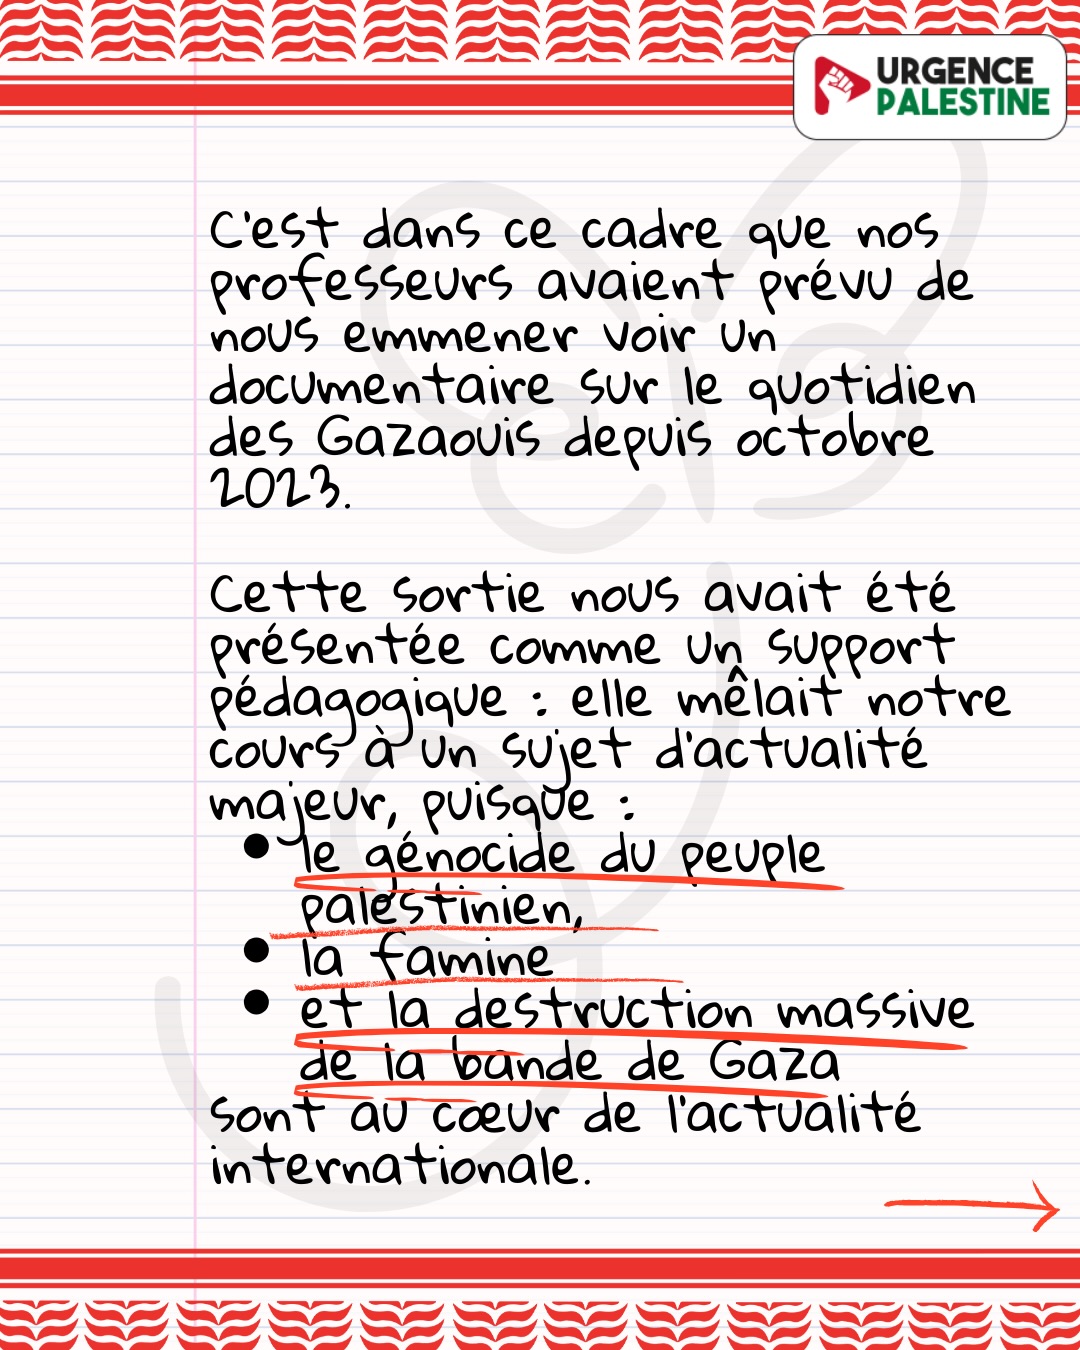 URGENCE
PALESTINE
C'est dans ce cadre que nos
professeurs avaient prévu de
nous emmener voir un
documentaire sur le quotidien
des Gazaouis depuis octobre
2023.
Cette sortie nous avait été
présentée comme un support
pédagogique : elle mêlait notre
cours à un sujet d'actualité
majeur, puisque :
• le génocide du peuple
palestinien,
• la famine
• et la destruction massive
de la bande de Gaza
sont au cœur de l'actualité
internationale.